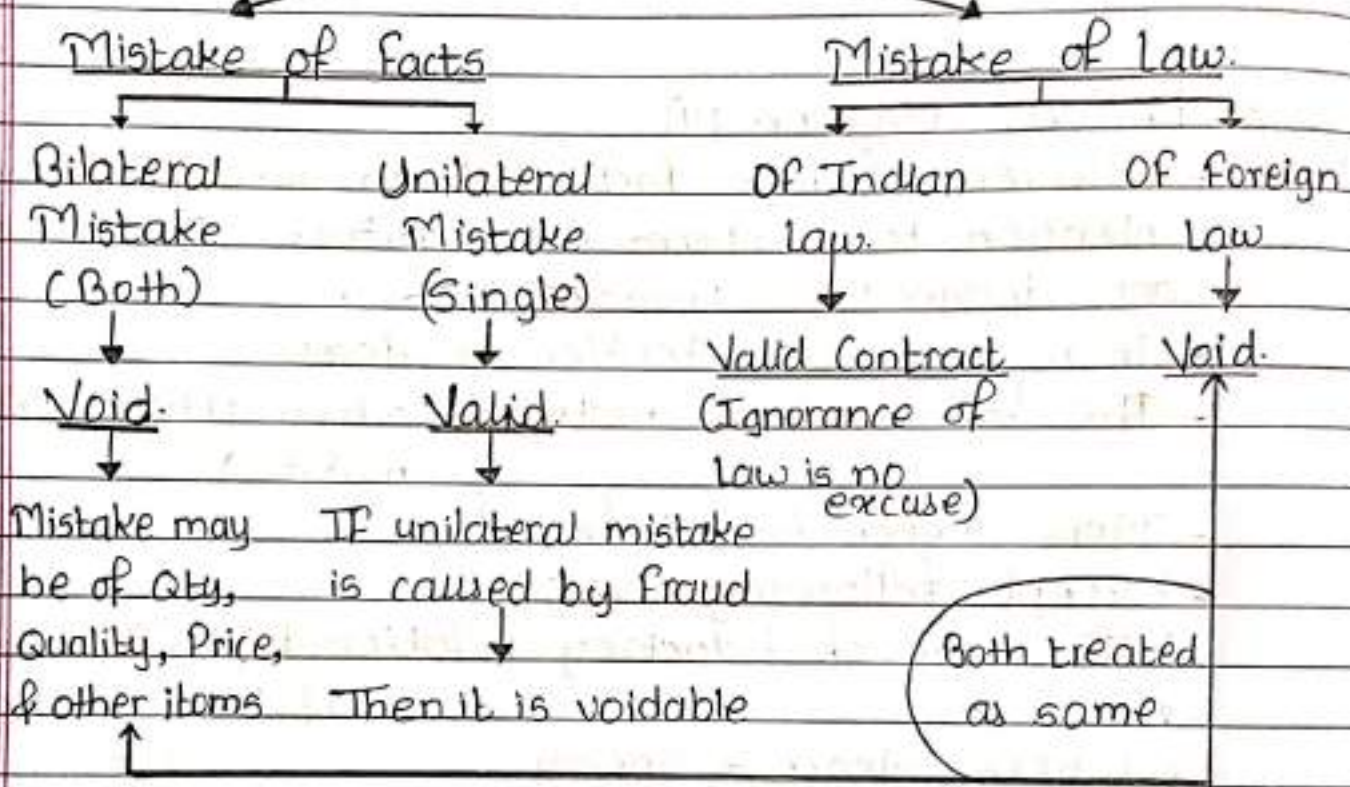 Mistake of facts
Mistake of law.
Bilateral
Mistake
(Both)
Void.
Mistake may
be of Qty,
Quality, Price,
& other itoms
Unilateral
Mistake
(Single)
Valid.
IF unilateral mistake
is caused by fraud
Then it is voidable
Of Indian
Law.
Valid Contract
(Ignorance of
Law is no
excuse)
Of foreign
Law
Void.
Both treated
as same.